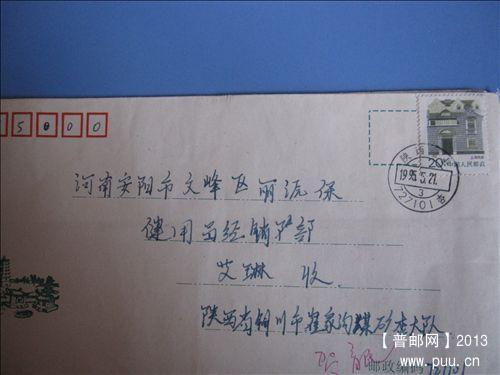 5 0 0 0
20
中国人民邮政
1995.5.21.
3
727101
河南安阳市文峰区丽沅保
健用品经销门部
艾琳 收
陕西省铜川市崔家沟煤矿老大队
邮政编码 727101
【普邮网】2013
www.puu.cn